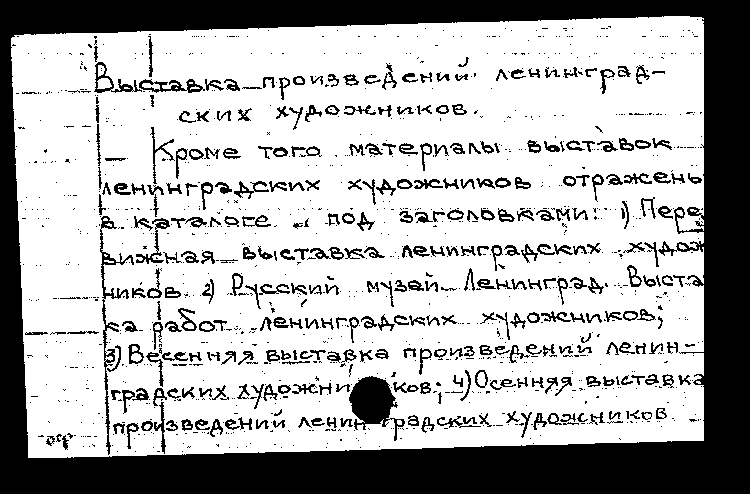 Выставка произведений ленинград-
ских художников.
Кроме того материалы выставок
ленинградских художников отражены
в каталоге под заголовками: 1) Пере
вижная выставка ленинградских худож
ников 2) Русский музей. Ленинград. Выста
ка работ ленинградских художников;
3) Весенняя выставка произведений ленин-
градских художников; 4) Осенняя выставка
произведений ленинградских художников